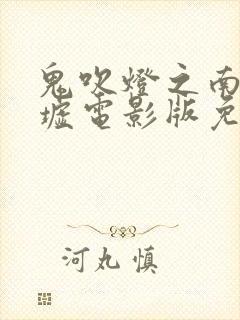 鬼吹燈之南
墟電影版免
河丸慎